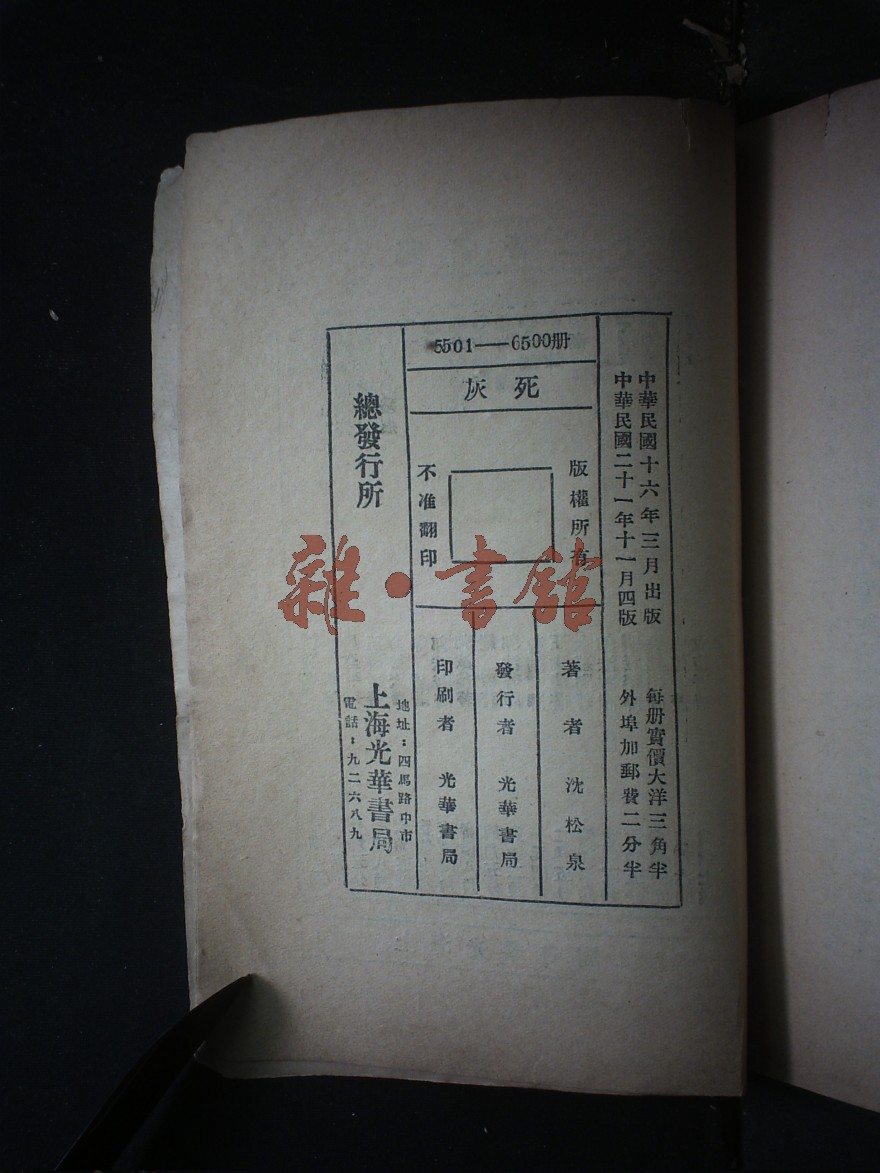 中華民國十六年三月出版 每册實價大洋三角半
中華民國二十一年十一月四版 外埠加郵費二分半
5501——6500册
死灰
版權所有
不准翻印
著者 沈松泉
發行者 光華書局
印刷者 光華書局
總發行所
地址：四馬路中市
上海光華書局
電話：九二六八九
雜·書館